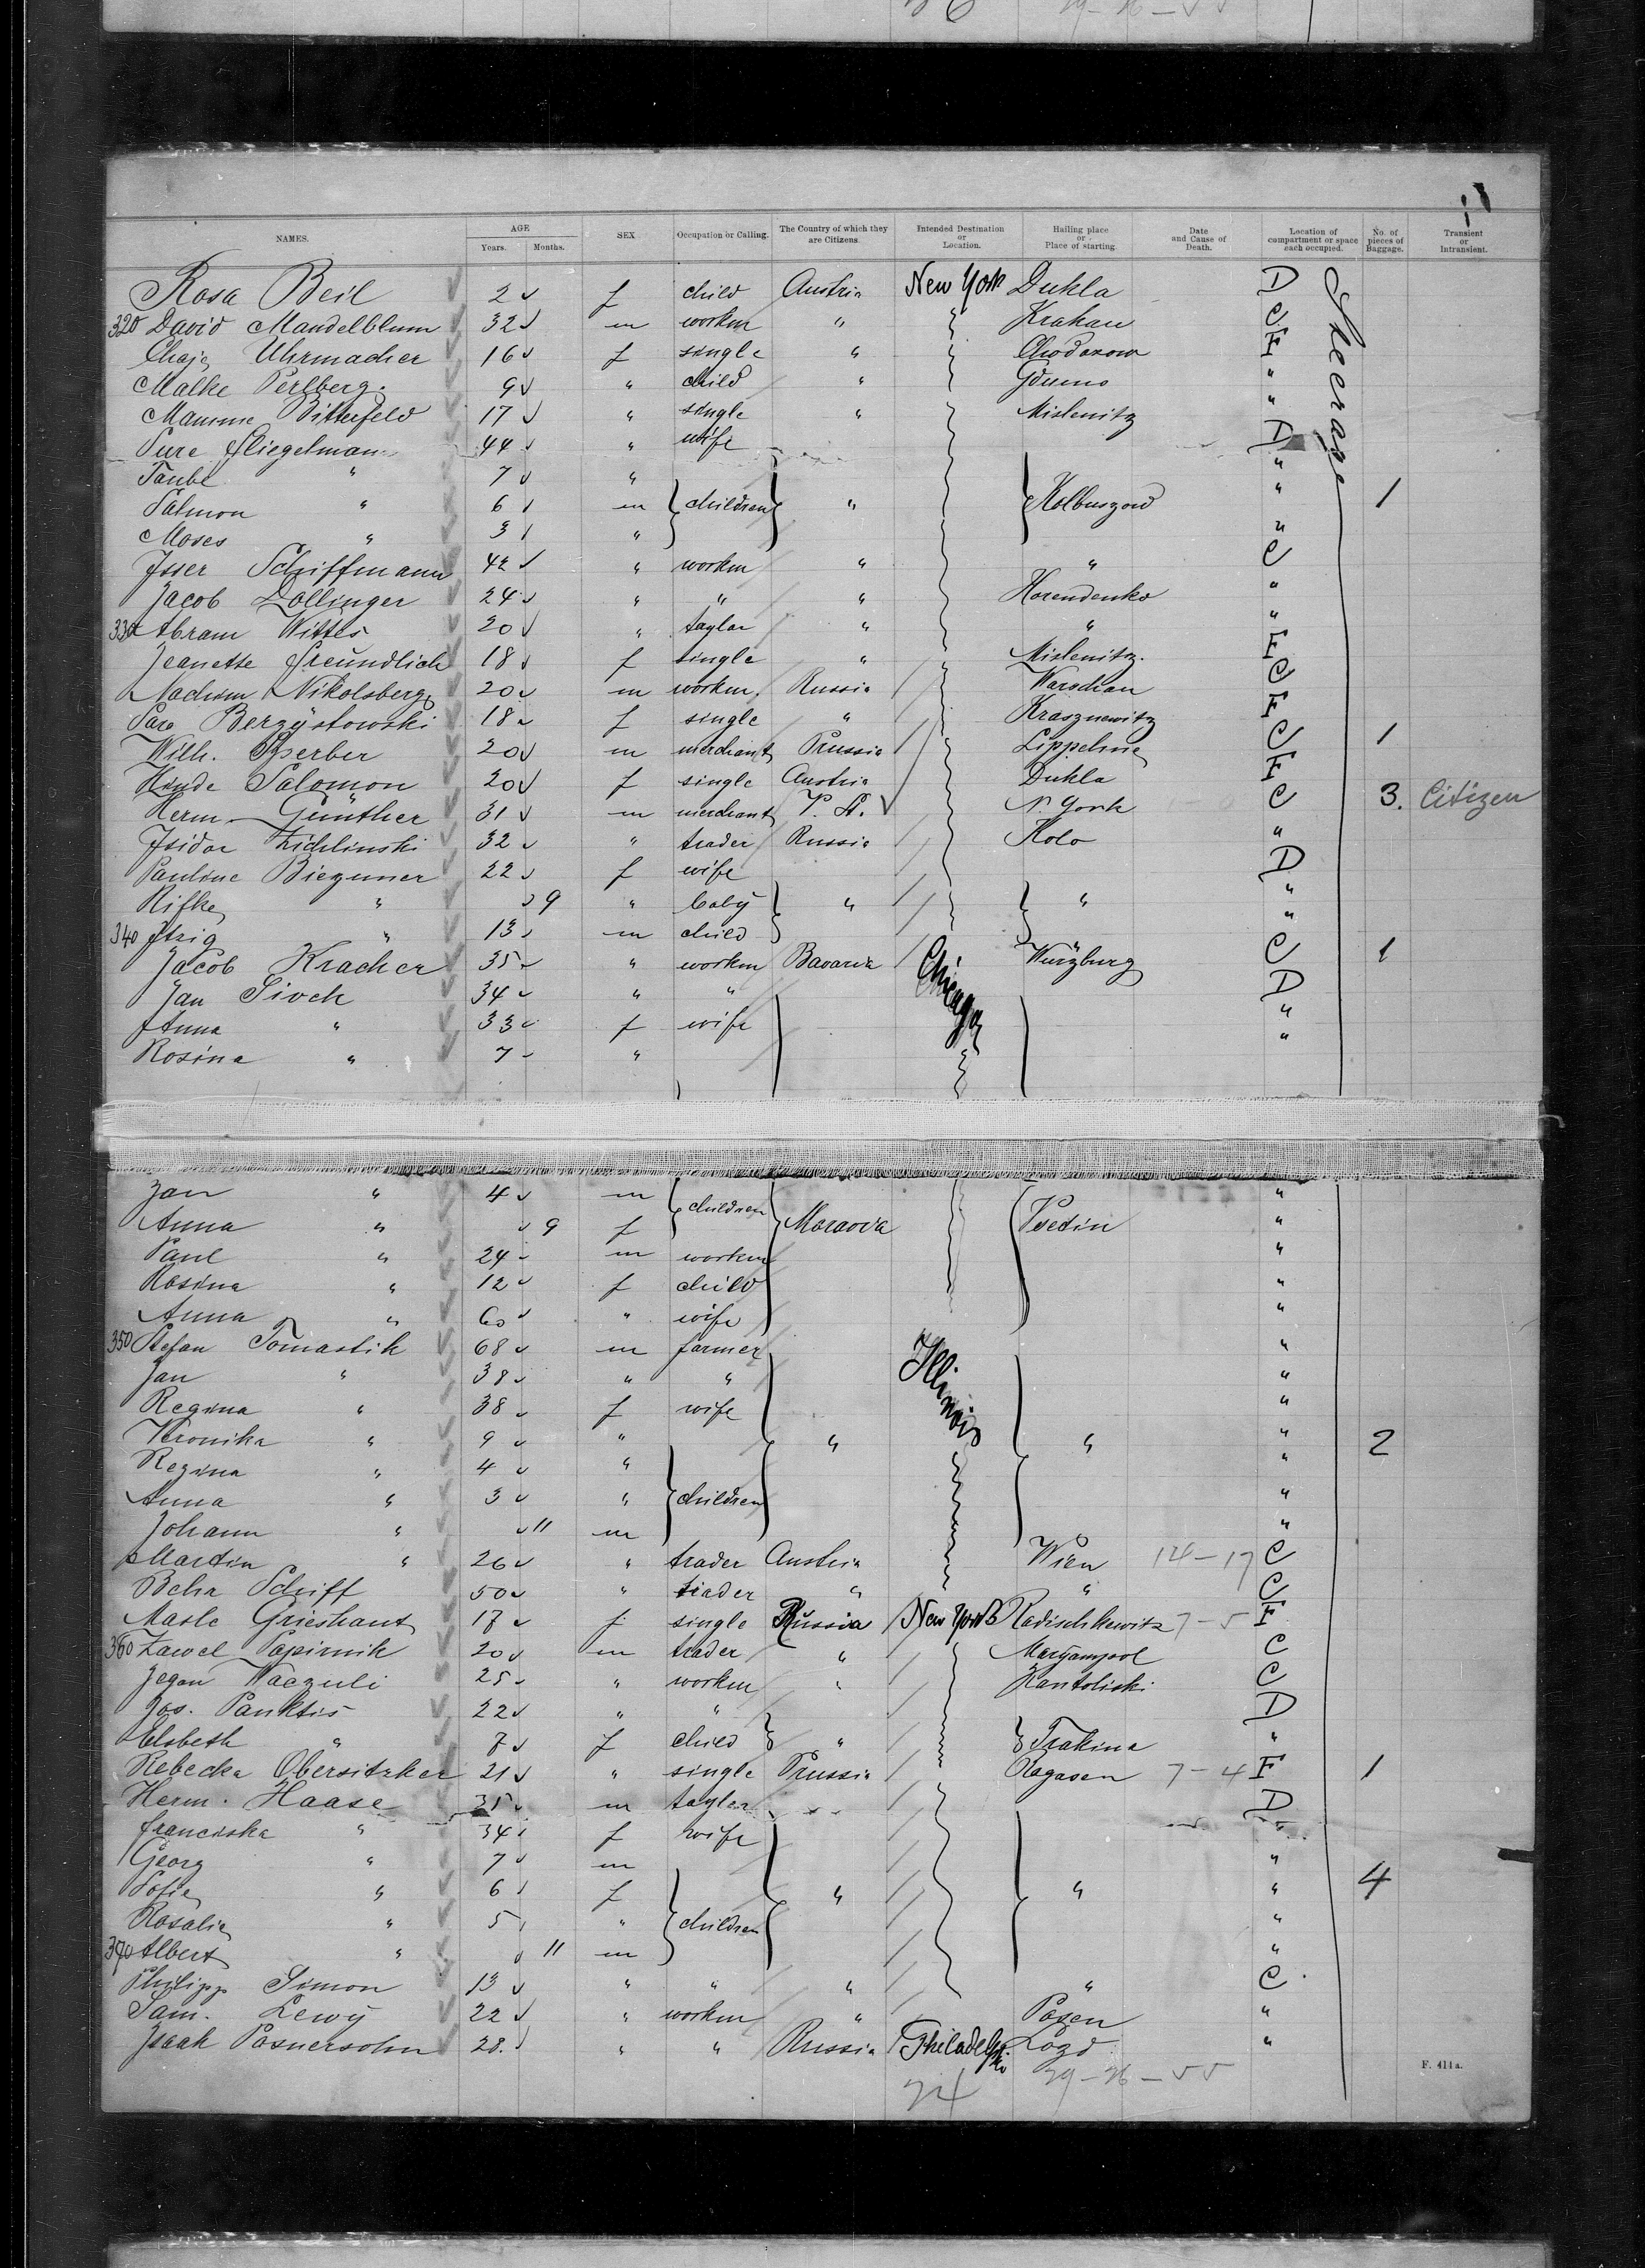 29-26-55
NAMES. AGE Years. Months. SEX Occupation or Calling. The Country of which they are Citizens. Intended Destination or Location. Hailing place or Place of starting. Date and Cause of Death. Location of compartment or space each occupied. No. of pieces of Baggage. Transient or Intransient.
Rosa Beil 2 f child Austria New York Dukla D Steerage
320 David Mandelblum 32 m workm " Krakau C
Chaje Uhrmacher 16 f single " Chodorow F
Malke Perlberg 9 " child " "
Mamme Bitterfeld 17 " single " Mislenitz "
Pure Fliegelman 44 " wife D
Taube " 7 " "
Salmon " 6 m children " Kolbuszow " 1
Moses " 3 " "
Isser Schiffmann 42 " workm " " C
Jacob Dollinger 24 " " " Horendenko "
330 Abram Wittes 20 " taylor " " "
Jeanette Freundlich 18 f single " Mislenitz. F
Nachum Nikolsberg 20 m workm. Russia Warschau C
Sara Berzystowski 18 f single " Krasznewitz F
Wilh. Sperber 20 m merchant Prussia Lippehne C 1
Hinde Salomon 20 f single Austria Dukla F
Herm. Günther 31 m merchant N York C 3. Citizen
Isidor Zichlinski 32 " trader Russia Kolo "
Pauline Biezuner 22 f wife D
Rifke " 9 " baby " " "
340 Itzig " 13 m child "
Jacob Kracher 35 " workm Bavaria Chicago Würzburg C 1
Jan Sivek 34 " " D
Anna " 33 f wife "
Rosina " 7 " "
Jan " 4 m children "
Anna " 9 f Moravia Vsetin "
Paul " 24 m workm "
Rosina " 12 f child "
Anna " 60 " wife "
350 Stefan Tomastik 68 m farmer Illinois "
Jan " 38 " " "
Regina " 38 f wife "
Veronika " 9 " " " " 2
Regina " 4 " "
Anna " 3 " children "
Johann " 11 m "
Martin " 26 " trader Austria Wien 14-17 C
Behr Schiff 50 " trader " " C
Masle Grieshant 17 f single Russia New York Radischkewitz 7-5 F
360 Zawel Papirnik 20 m trader " Maryampol C
Jegan Waczuli 25 " workm " Kantoliski C
Jos. Panktis 22 " " D
Elsbeth " 7 f child " Trakina "
Rebecka Obersitzker 21 " single Prussia Rogasen 7-4 F 1
Herm. Haase 35 m taylor D
Franciska " 34 f wife "
Georg " 7 m "
Sofie " 6 f " " " 4
Rosalie " 5 " children "
370 Albert " 11 m "
Philipp Simon 13 " " " " C
Sam. Lewy 22 " workm " Posen "
Isaak Posnersohn 28. " " Russia Philadelphia Lozd "
24 29-26-55
F. 411a.